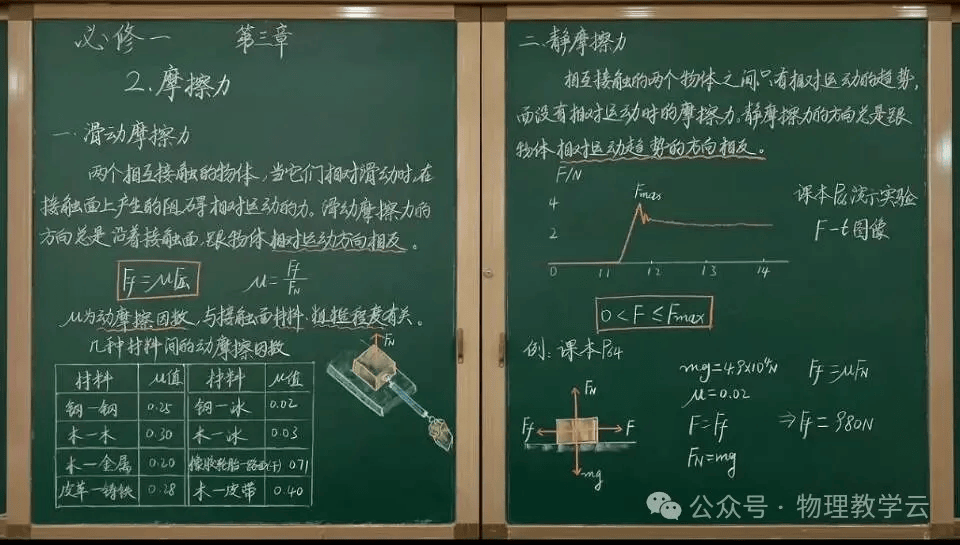 必修一 第三章
2.摩擦力
一.滑动摩擦力
两个相互接触的物体,当它们相对滑动时,在
接触面上产生的阻碍相对运动的力。滑动摩擦力的
方向总是沿着接触面,跟物体相对运动方向相反。
Ff=μF压 μ=Ff/FN
μ为动摩擦因数,与接触面材料、粗糙程度有关。
几种材料间的动摩擦因数
材料 μ值 材料 μ值
钢一钢 0.25 钢一冰 0.02
木一木 0.30 木一冰 0.03
木一金属 0.20 橡胶轮胎一路面(干) 0.71
皮革一铸铁 0.28 木一皮带 0.40
FN
二.静摩擦力
相互接触的两个物体之间只有相对运动的趋势,
而没有相对运动时的摩擦力。静摩擦力的方向总是跟
物体相对运动趋势的方向相反。
F/N
4
2
0 11 12 13 14
Fmax
演示实验
F-t图像
0<F≤Fmax
例:课本P64
FN
Ff F
mg
mg=4.9×10⁴N Ff=μFN
μ=0.02
F=Ff ⇒Ff=980N
FN=mg
公众号·物理教学云